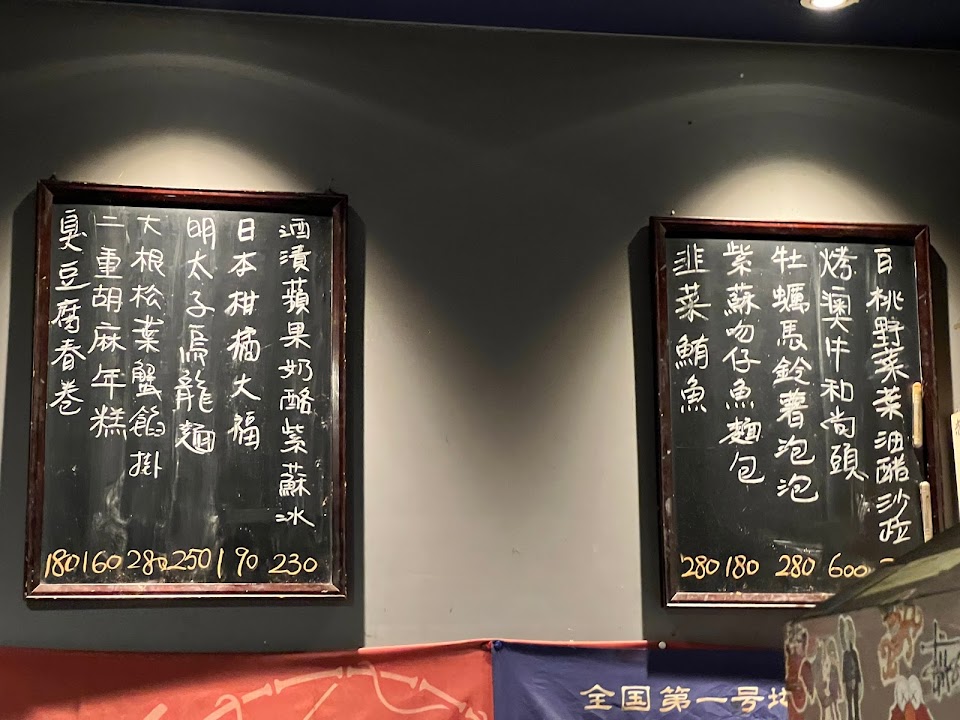 白桃野葉菜油醋沙拉
烤澳牛和尚頭 600
牡蠣馬鈴薯泡泡 280
紫蘇吻仔魚麵包 180
韭菜鮪魚 280
酒漬蘋果奶酪紫蘇冰 230
日本柑橘大福 190
明太子烏龍麵 250
大根松葉蟹餡掛 280
二重胡麻年糕 160
臭豆腐春卷 180
全国第一号